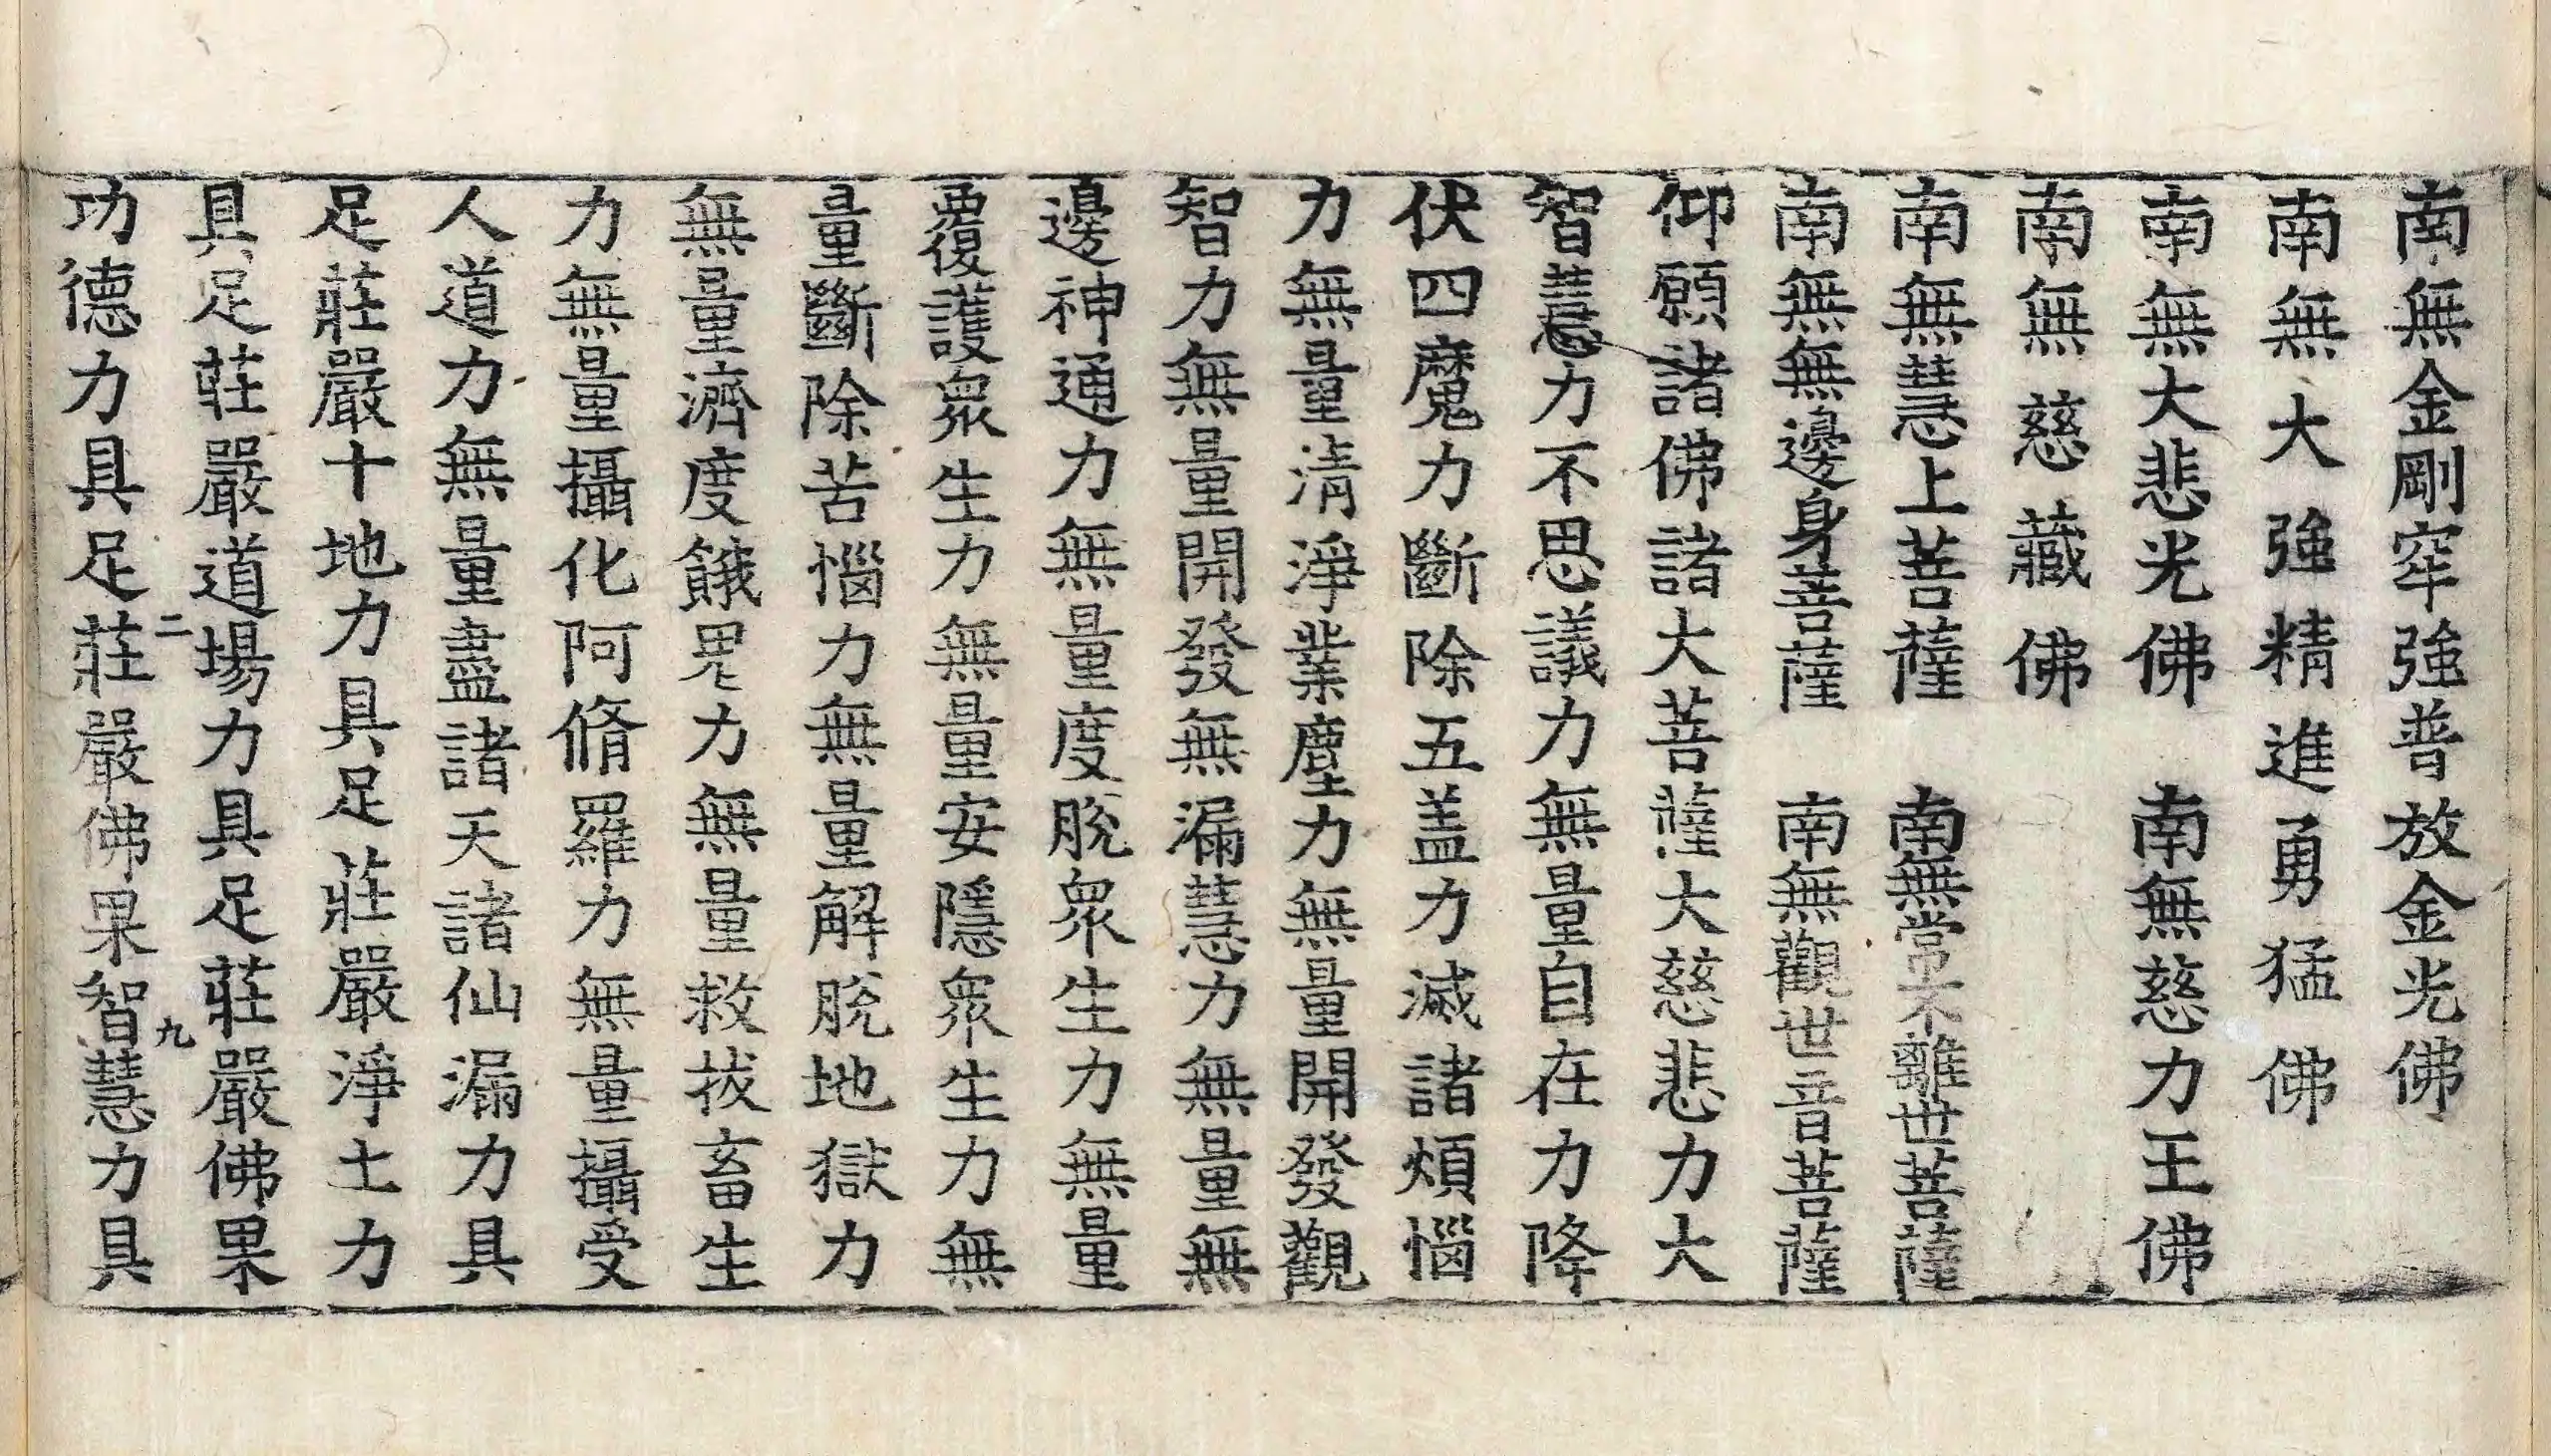 南無金剛窂強普放金光佛
南無大強精進勇猛佛
南無大悲光佛　南無慈力王佛
南無慈藏佛
南無慧上菩薩　南無常不離世菩薩
南無無邊身菩薩　南無觀世音菩薩
仰願諸佛諸大菩薩大慈悲力大
智慧力不思議力無量自在力降
伏四魔力斷除五盖力滅諸煩惱
力無量清淨業塵力無量開發觀
智力無量開發無漏慧力無量無
邊神通力無量度脫衆生力無量
覆護衆生力無量安隱衆生力無
量斷除苦惱力無量解脫地獄力
無量濟度餓鬼力無量救拔畜生
力無量攝化阿脩羅力無量攝受
人道力無量盡諸天諸仙漏力具
足莊嚴十地力具足莊嚴淨土力
具足莊嚴道場力具足莊嚴佛果
二　九
功德力具足莊嚴佛果智慧力具